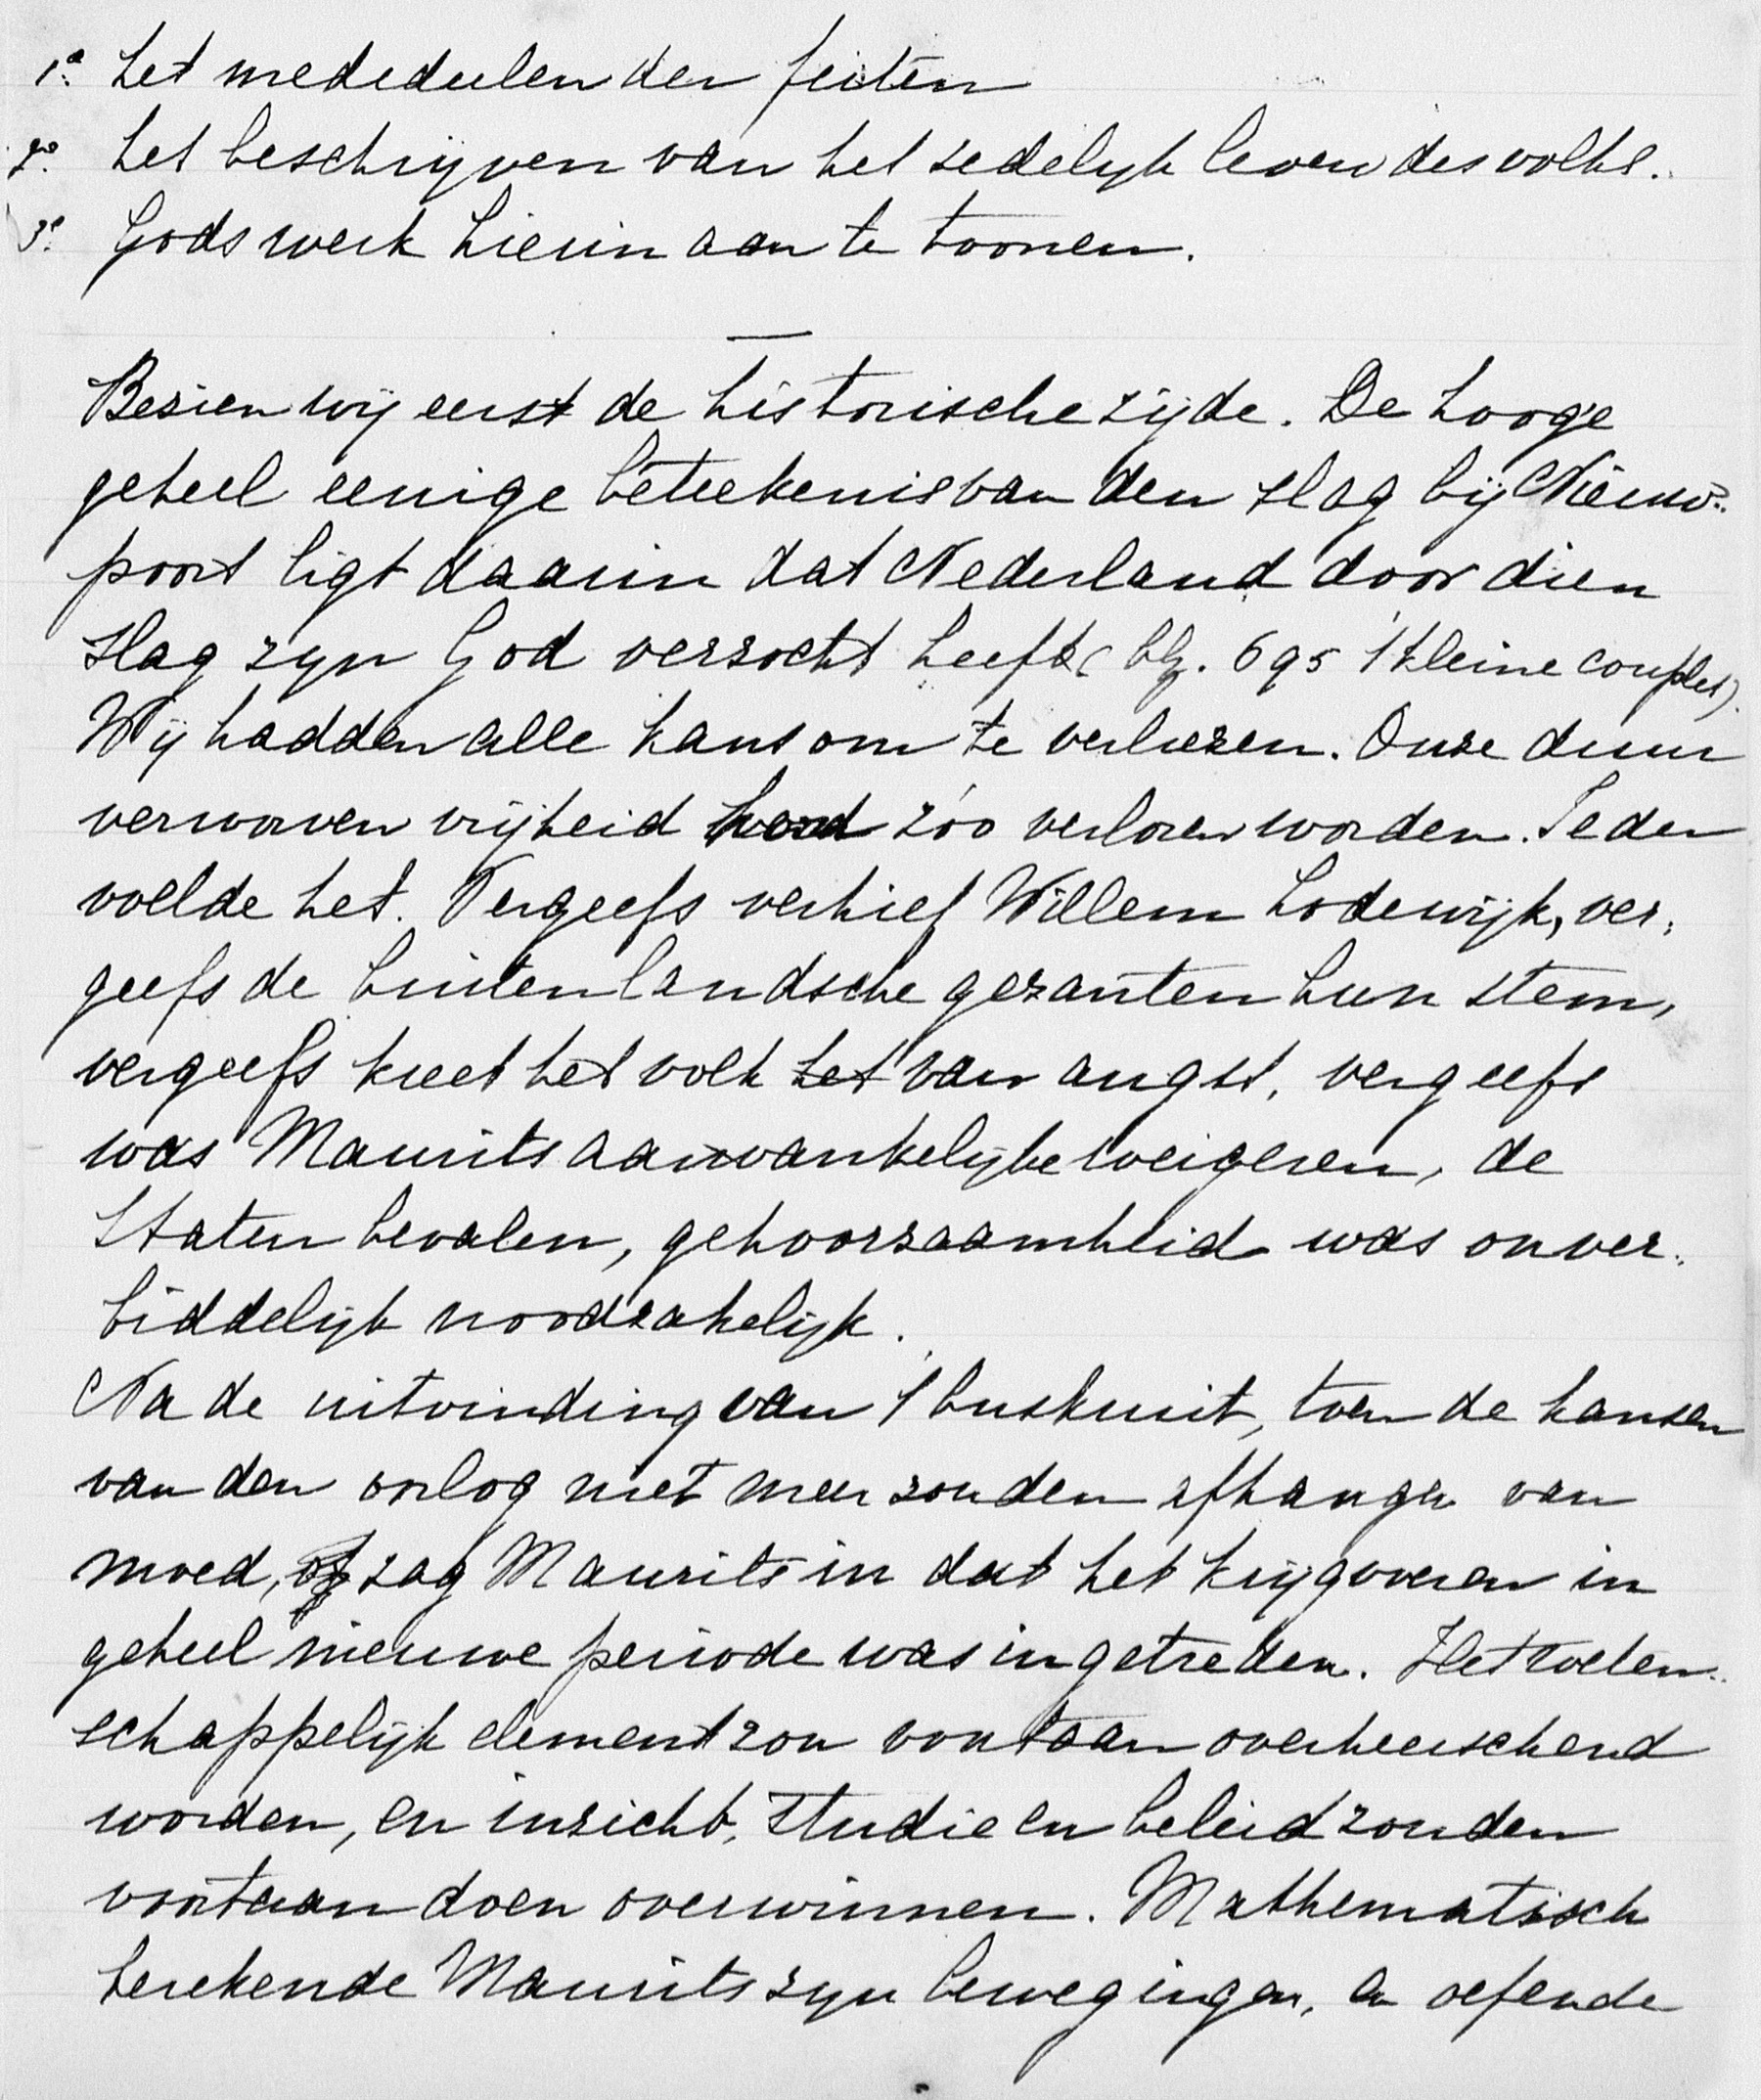 1º. het mededeelen der feiten
2º. het beschrijven van het zedelijk leven des volks.
3º. Gods werk hierin aan te toonen.
Bezien wij eerst de historische zijde. De hooge
geheel eenige beteekenis van den slag bij Nieuw-
poort ligt daarin dat Nederland door dien
slag zijn God verzocht heeft (blz. 695 1 kleine couplet).
Wij hadden alle kans om te verliezen. Onze duur
verworven vrijheid zóo verloren worden. Ieder
voelde het. Vergeefs verhief Willem Lodewijk, ver-
geefs de buitenlandsche gezanten hun stem,
vergeefs kreet het volk het van angst, vergeefs
was Maurits aanvankelijke weigeren, de
Staten bevalen, gehoorzaamheid was onver-
biddelijk noodzakelijk.
Na de uitvinding van 't buskruit, toen de kansen
van den oorlog niet meer zouden afhangen van
moed, zag Maurits in dat het krijgvoeren in
geheel nieuwe periode was ingetreden. Het weten-
schappelijk element zou voortaan overheerschend
worden, en inzicht, studie en beleid zouden
voortaan doen overwinnen. Mathematisch
berekende Maurits zijn bewegingen, en oefende